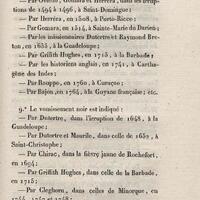 —Par Oviedo, Gomara et Herrera, dans les irrup-
tions de 1494 à 1496, à Saint-Domingue;
—Par Herréra, en 1508, à Porto-Ricco;
—Par Gomara, en 1514, à Sainte-Marie du Darien;
—Par les missionnaires Dutertre et Raymond Bre-
ton, en 1635, à la Guadeloupe;
—Par Griffith Hughes, en 1715, à la Barbade;
—Par les historiens anglais, en 1741, à Cartha-
gène des Indes;
—Par Rouppe, en 1760, à Curaçao;
—Par Bajon, en 1764, à la Guyane française; etc.
9.° Le vomissement noir est indiqué:
—Par Dutertre, dans l'irruption de 1648, à la
Guadeloupe;
—Par Dutertre et Maurile, dans celle de 1652, à
Saint-Christophe;
—Par Chirac, dans la fièvre jaune de Rochefort,
en 1694;
—Par Griffith Hughes, dans celle de la Barbade,
en 1715;
—Par Cleghorn, dans celles de Minorque, en
1744, 1760 et 1748;